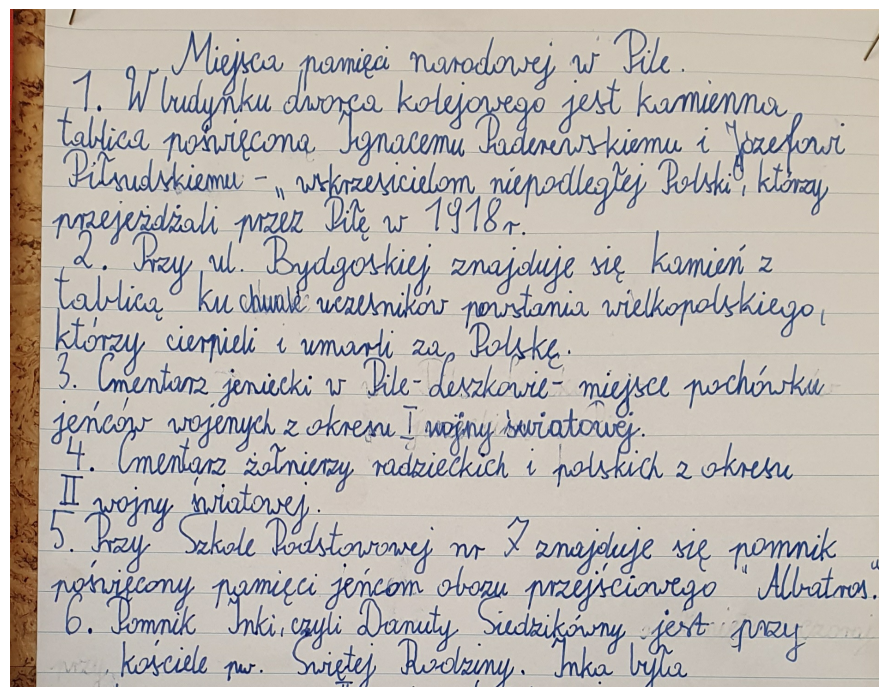 Miejsca pamięci narodowej w Pile.
1. W budynku dworca kolejowego jest kamienna
tablica poświęcona Ignacemu Paderewskiemu i Józefowi
Piłsudskiemu - „wskrzesicielom niepodległej Polski", którzy
przejeżdżali przez Piłę w 1918 r.
2. Przy ul. Bydgoskiej znajduje się kamień z
tablicą ku chwale uczesników powstania wielkopolskiego,
którzy cierpieli i umarli za Polskę.
3. Cmentarz jeniecki w Pile-Leszkowie- miejsce pochówku
jeńców wojenych z okresu I wojny światowej.
4. Cmentarz żołnierzy radzieckich i polskich z okresu
II wojny światowej.
5. Przy Szkole Podstowowej nr 7 znajduje się pomnik
poświęcony pamięci jeńcom obozu przejściowego "Albatros."
6. Pomnik Inki, czyli Danuty Siedzikówny jest przy
kościele pw. Świętej Rodziny. Inka była